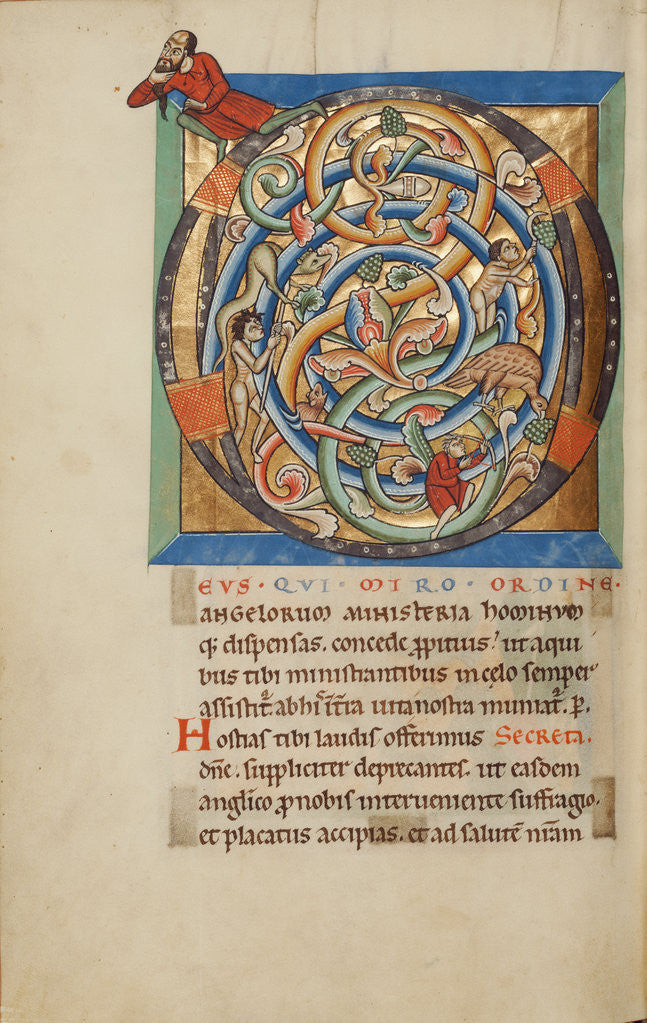 D
EVS · QVI · MIRO · ORDINE ·
ANGELORUM MINISTERIA hOMINVM
q; dispensas. concede ꝓpitius! ut aqui
bus tibi ministrantibus in cęlo semper
assistit᷑. ab his ĩ t̃ra uita nostra muniat᷑. P.
Hostias tibi laudis offerimus SECRETA.
dñe. suppliciter deprecantes. ut easdem
anglico ꝓ nobis interueniente suffragio.
et placatus accipias. et ad salutẽ nr̃am